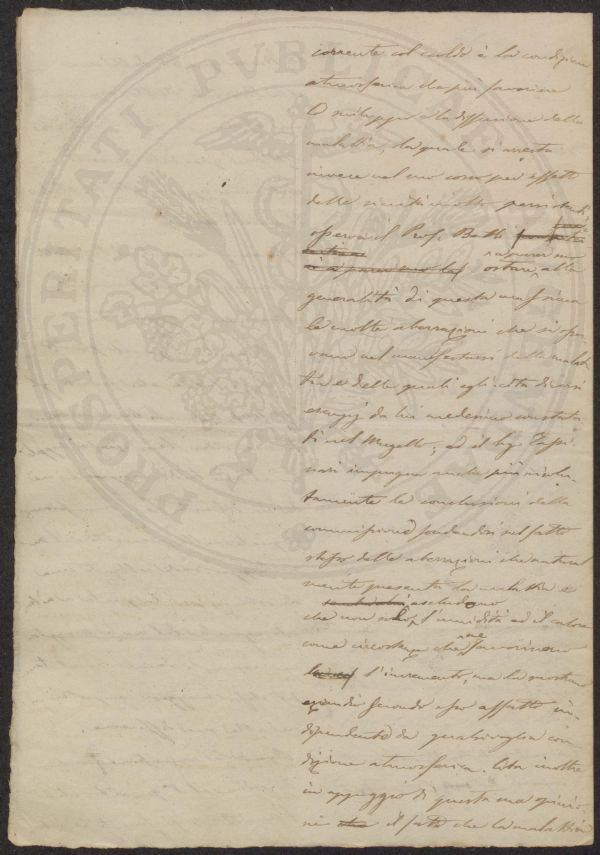 corrente col caldo è la condizione
atmosferica che più favorisce
lo sviluppo e la diffusione della
malattia, la quale si arresta
invece nel suo corso per effetto
delle
osserva il Prof. Betti
ostare alla
generalità di questa
le molte aberrazioni che si osser
vano nel manifestarsi della malat
tia e delle quali egli cita diversi
esempj da lui medesimo constata
ti nel Mugello; ed il Sig. Tassi
nari impugna anche più risolu
tamente le conclusioni della
commissione fondandosi sul fatto
stesso delle aberrazioni che natural
mente presenta la malattia e
escludono
che non solo l'umidità ed il calore
come circostanze che ne favoriscono
l'incremento, ma la mostrano
quindi secondo esso affatto in-
dipendente da qualsivoglia con
dizione atmosferica. Cita inoltre
in appoggio di questa sua opinio
ne il fatto che la malattia
PROSPERITATI PVBLICAE